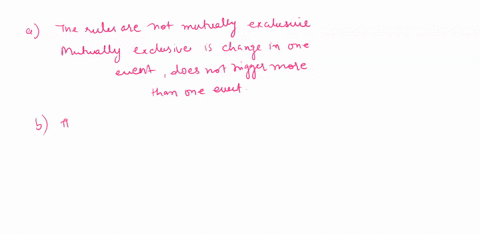 a) The rules are not mutually exclusive
Mutually exclusive is change in one
event, does not trigger more
than one event.
b)